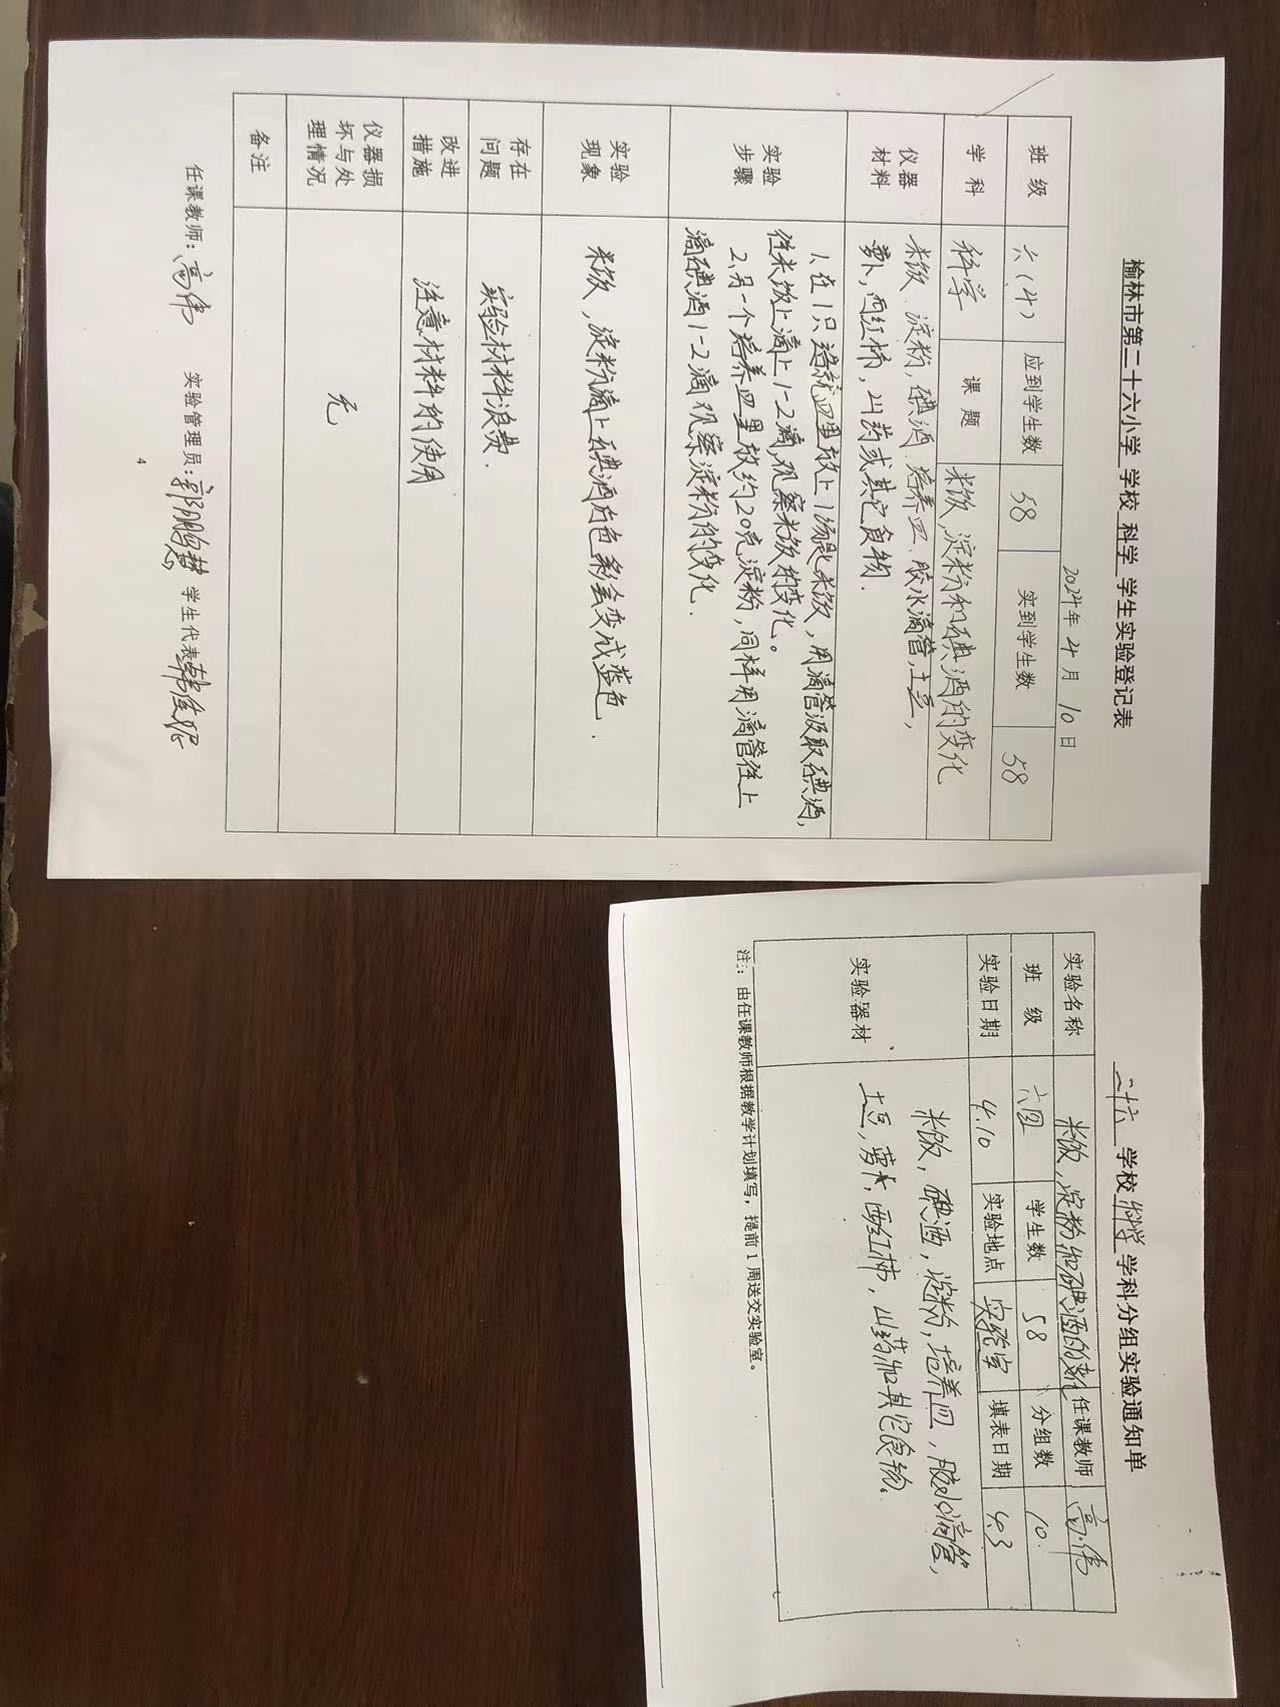 榆林市第二十六小学 学校 科学 学生实验登记表
2024年 4月 10日
班级 六(4) 应到学生数 58 实到学生数 58
学科 科学 课题 米饭,淀粉和碘酒的变化
仪器材料 米饭、淀粉,碘酒、培养皿、胶水滴管,土豆,
萝卜,西红柿,山药或其它食物.
实验步骤 1、在1只培养皿里放上1汤匙米饭,用滴管汲取碘酒,
往米饭上滴上1-2滴,观察米饭的变化。
2、另一个培养皿里放约20克淀粉,同样用滴管往上
滴碘酒1-2滴观察淀粉的变化.
实验现象 米饭,淀粉滴上碘酒后色彩会变成蓝色.
存在问题 实验材料浪费.
改进措施 注意材料的使用
仪器损坏与处理情况 无
备注
任课教师:高伟 实验管理员:郭鹏慧 学生代表
4
二十六 学校 科学 学科分组实验通知单
实验名称 米饭,淀粉和碘酒的变化 任课教师 高伟
班级 六四 学生数 58 分组数 10.
实验日期 4.10 实验地点 实验室 填表日期 4.3
实验器材 米饭,碘酒,淀粉,培养皿,胶水滴管,
土豆,萝卜,西红柿,山药和其它食物。
注:由任课教师根据教学计划填写,提前1周送交实验室。